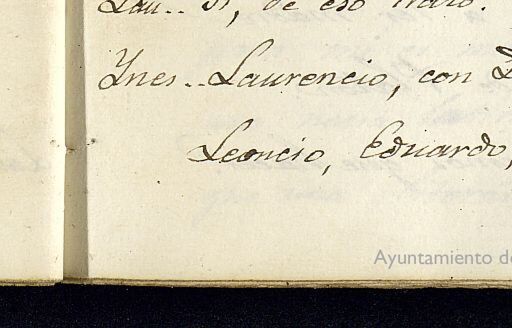 Lau.. Si, de eso trato.
Ynes.. Laurencio, con D
Leoncio, Eduardo,
Ayuntamiento de